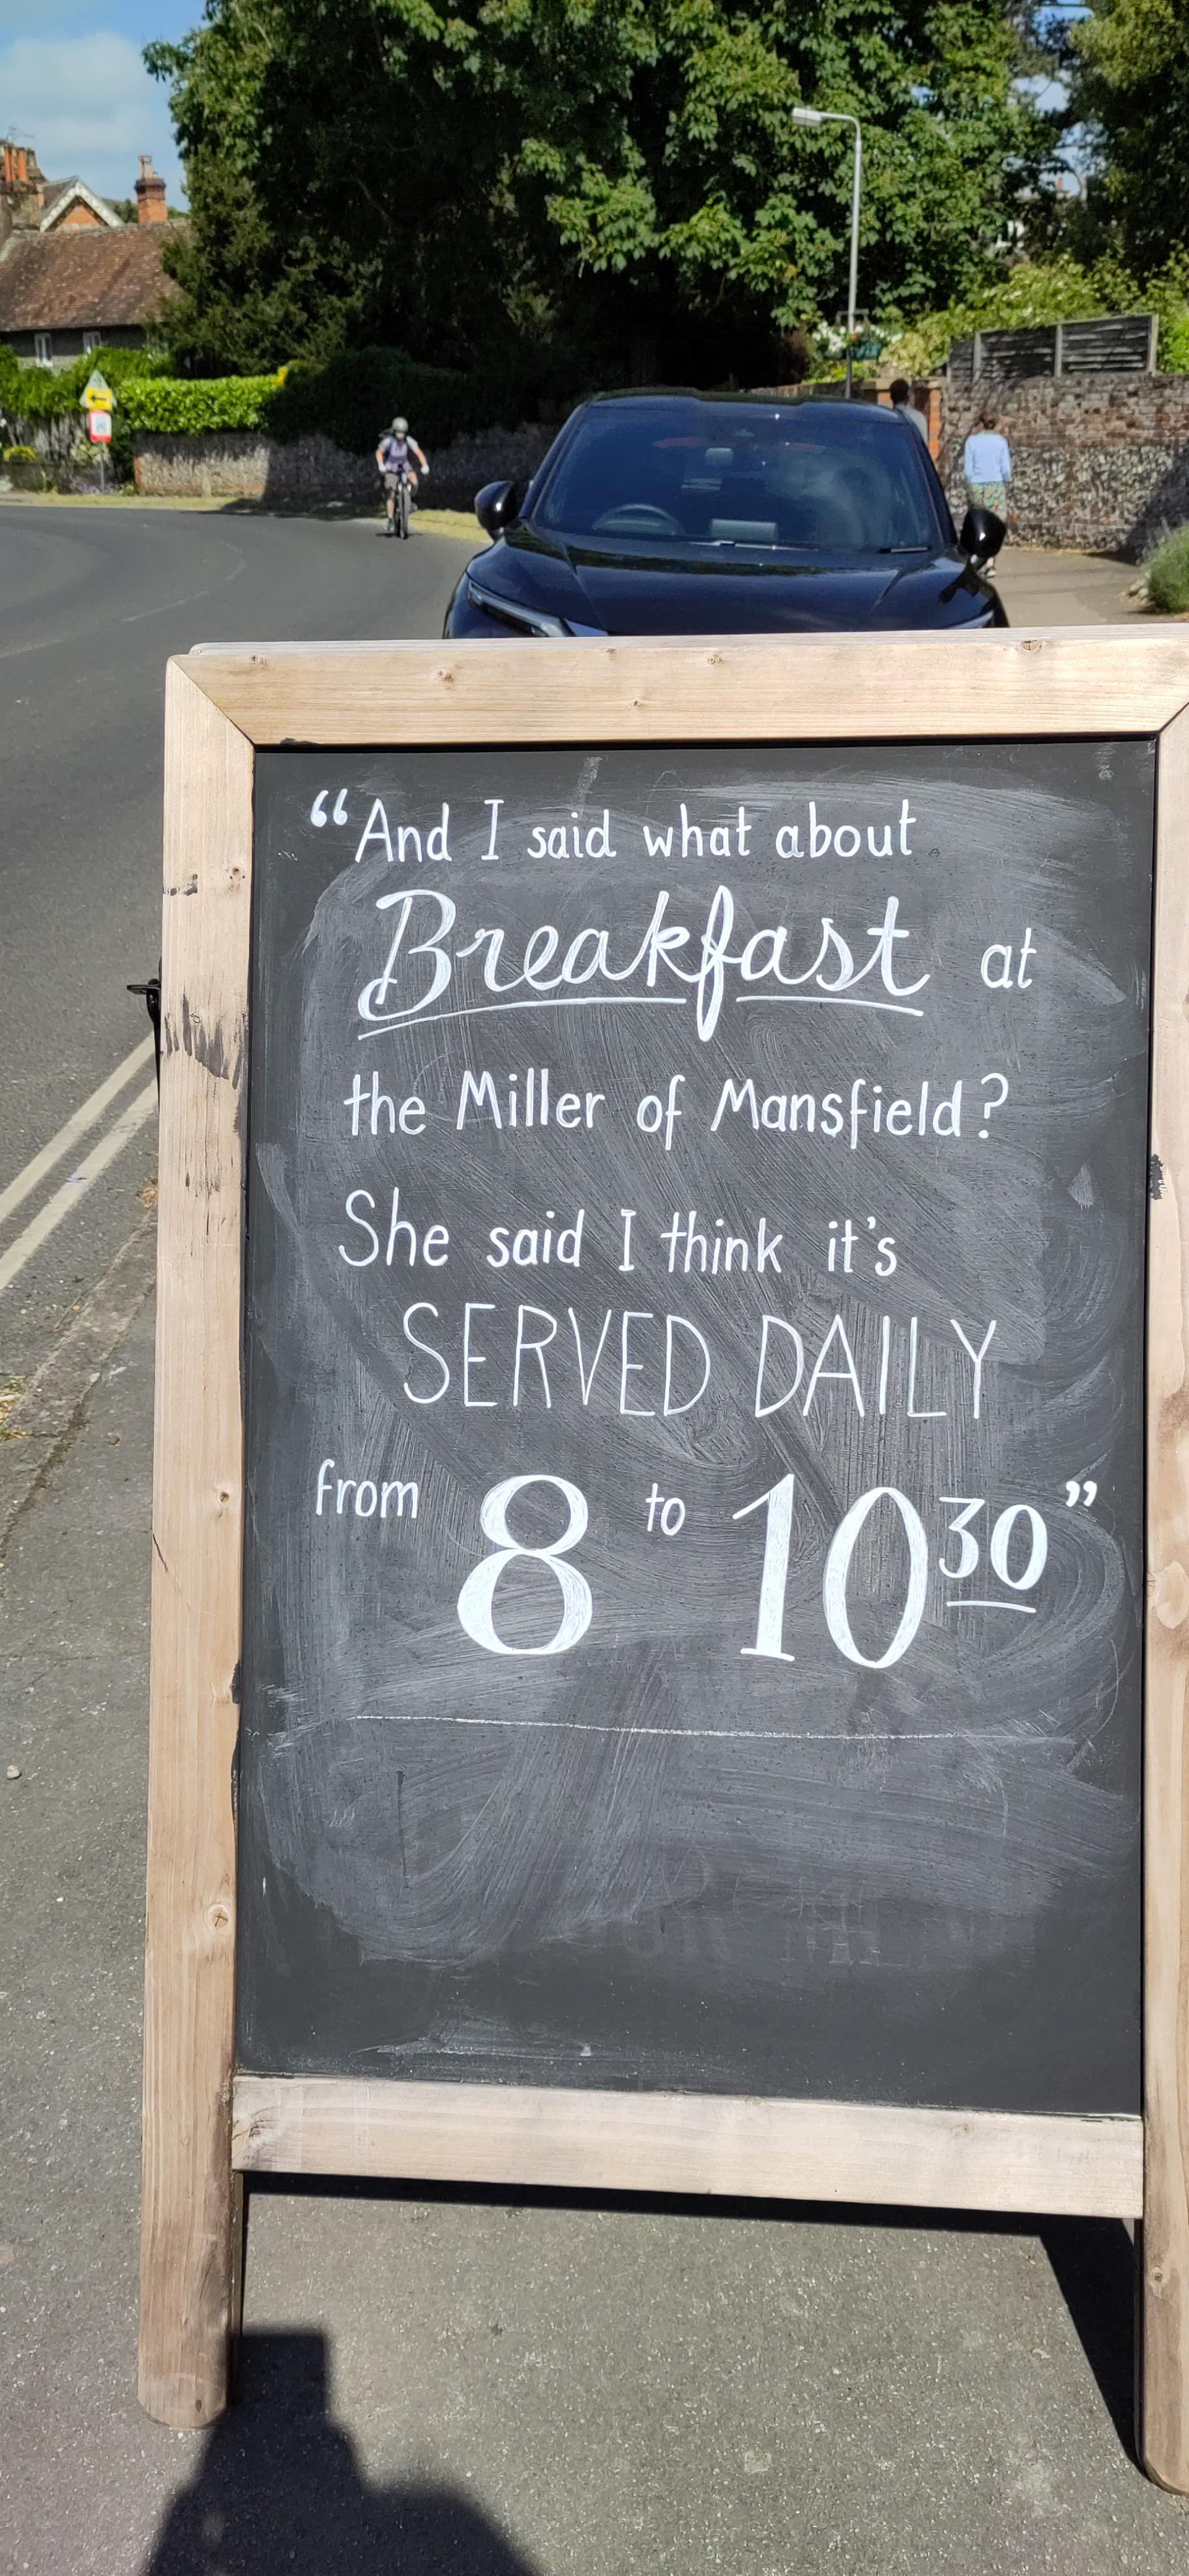 “And I said what about
Breakfast at
the Miller of Mansfield?
She said I think it's
SERVED DAILY
from 8 to 10³⁰”